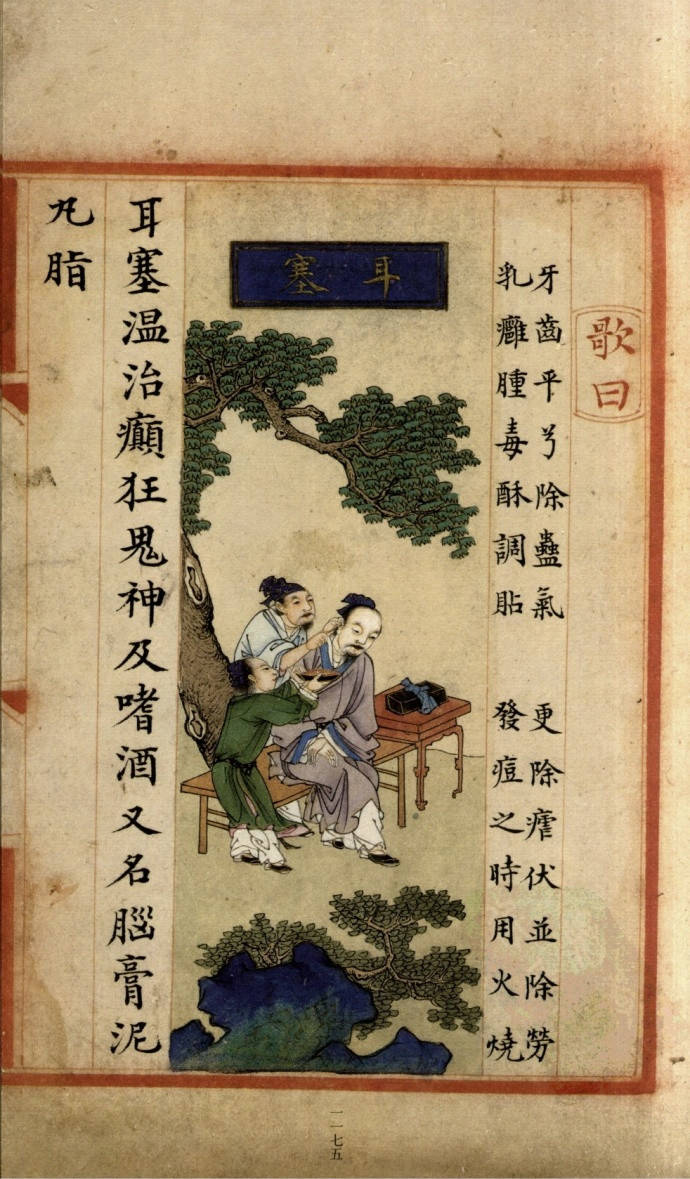 歌曰
牙齒平兮除蠱氣　更除瘧伏並除勞
乳癰腫毒酥調貼　發痘之時用火燒
耳塞
耳塞温治癲狂鬼神及嗜酒又名腦膏泥
丸脂
一一七五